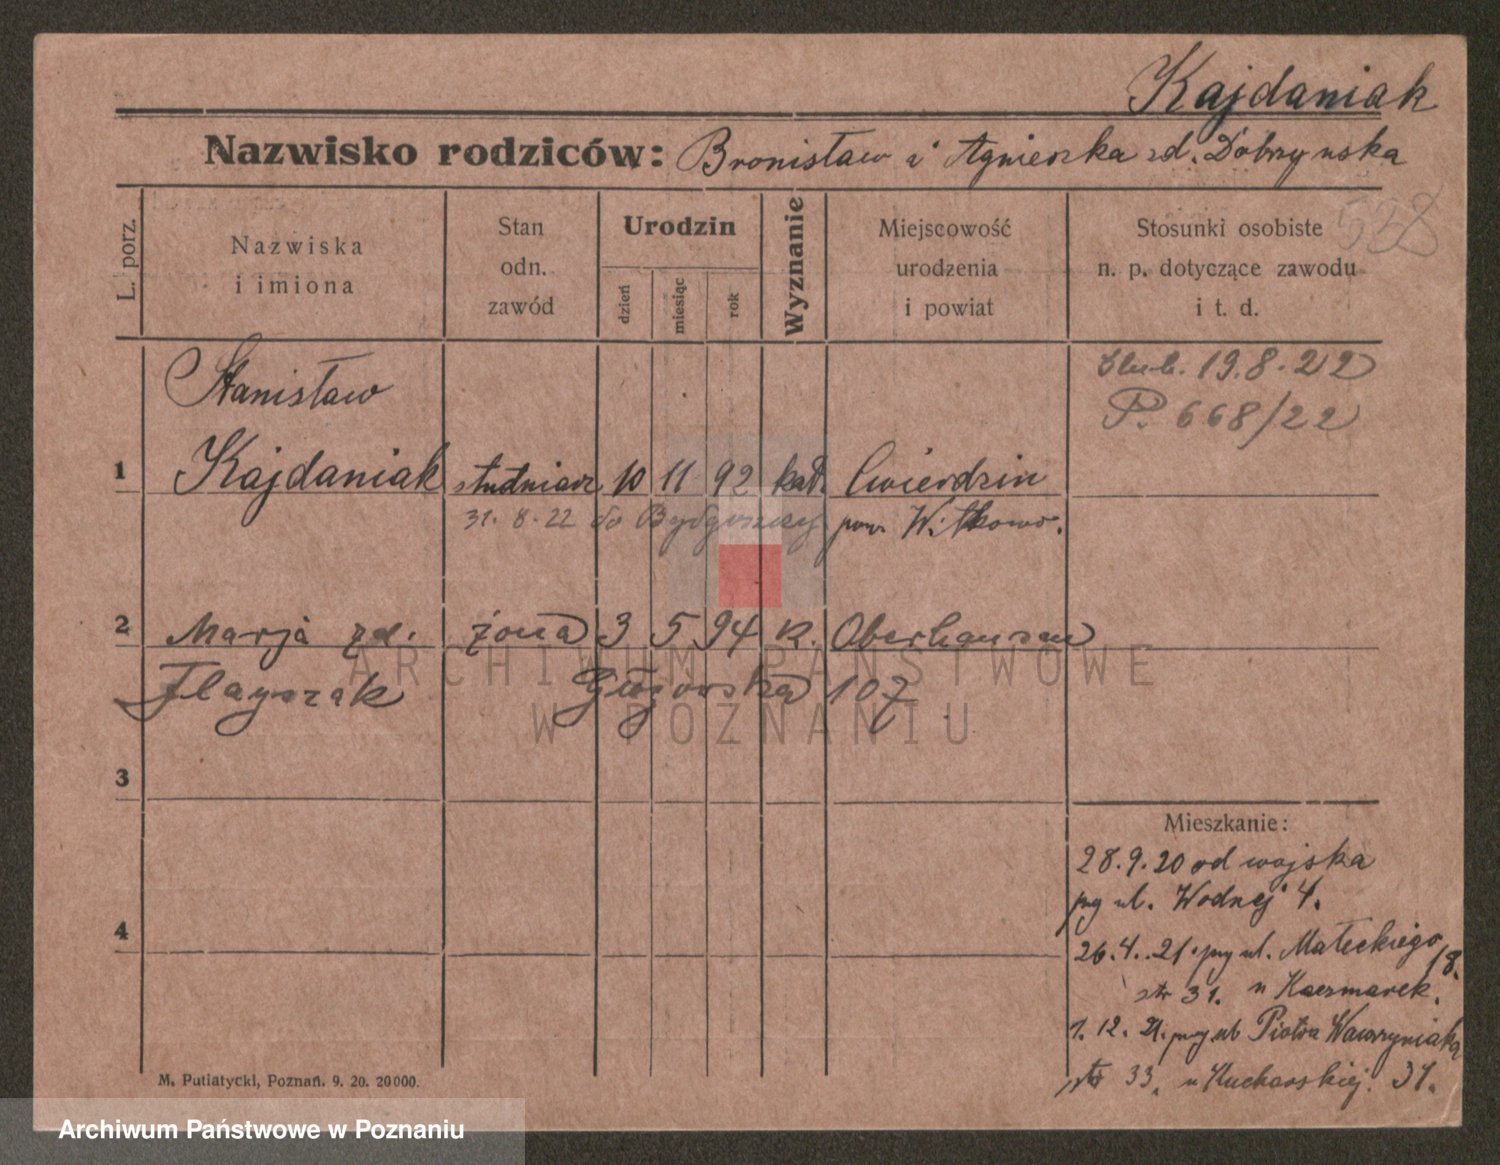 Kajdaniak
Nazwisko rodziców: Bronisław i Agnieszka zd. Dobrzyńska
538
L. porz.
Nazwiska
i imiona
Stan
odn.
zawód
Urodzin
dzień
miesiąc
rok
Wyznanie
Miejscowość
urodzenia
i powiat
Stosunki osobiste
n. p. dotyczące zawodu
i t. d.
ślub. 19.8.22
P. 668/22
Stanisław
1 Kajdaniak studniarz 10 11 92 kat. Cwierdzin
31. 8. 22 do Bydgoszczy pow. Witkowo.
2 Marja zd. żona 3 5 94 k. Oberhausen
Flayszak Głogowska 107
ARCHIWUM PAŃSTWOWE
W POZNANIU
3
4
Mieszkanie:
28.9.20 od wojska
przy ul. Wodnej 4.
26.4.21. przy ul. Małeckiego 18.
str 31. u Kaczmarek.
1. 12. 21. przy ul Piotra Wawrzyniaka
str 33. u Kucharskiej. 31.
M. Putiatycki, Poznań. 9. 20. 20000.
Archiwum Państwowe w Poznaniu